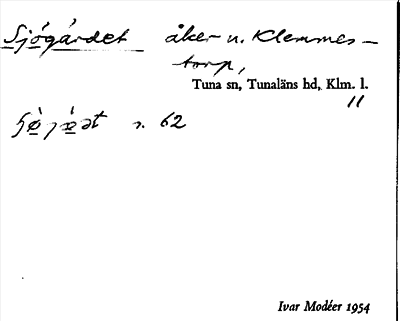 Sjögärdet åker u. Klemmes-
torp,
Tuna sn, Tunaläns hd, Klm. l.
11
s. 62
Ivar Modéer 1954